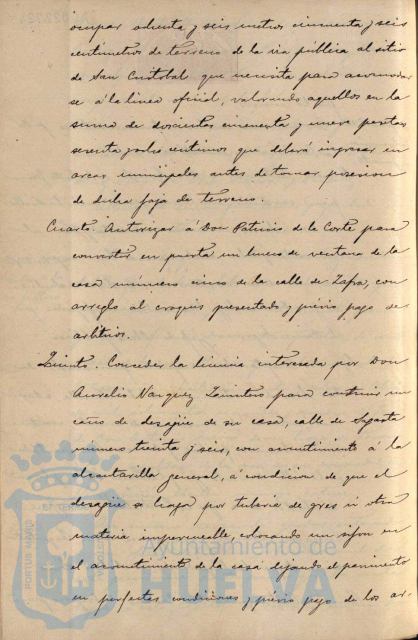 ocupar ochenta y seis metros cincuenta y seis
centímetros de terreno de la via pública al sitio
de San Cristobal que necesita para acomodar
se á la linea oficial, valorando aquellos en la
suma de doscientas cincuenta y nueve pesetas
sesenta y ocho centimos que deberá ingresar en
arcas municipales antes de tomar posesion
de dicha faja de terreno.
Cuarto. Autorizar á Don Patricio de la Corte para
convertir en puerta un hueco de ventana de la
casa número cinco de la calle de Zafra, con
arreglo al croquis presentado y previo pago de
arbitrios.
Quinto. Conceder la licencia interesada por Don
Aurelio Vazquez Quintero para construir un
caño de desagüe de su casa, calle de Sagasta
número treinta y seis, con acometimiento á la
alcantarilla general, á condicion de que el
desagüe se haga por tuberia de gres ú otra
materia impermeable, colocando un sifon en
el acometimiento de la casa dejando el pavimento
en perfectas condiciones y previo pago de los ar-
PORTUS MARIS
Ayuntamiento de
HUELVA